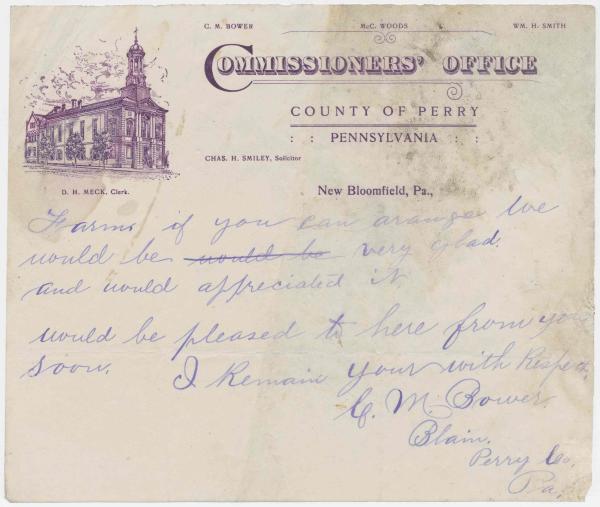 C. M. BOWER McC. WOODS WM. H. SMITH
COMMISSIONERS' OFFICE
COUNTY OF PERRY
: : PENNSYLVANIA : :
CHAS. H. SMILEY, Solicitor
D. H. MECK, Clerk.
New Bloomfield, Pa.,
Farms if you can arange We
would be would be very glad.
and would appreciated it
would be pleased to here from you
soon. I Remain your with Respect.
C. M. Bower
Blain.
Perry Co.
Pa.